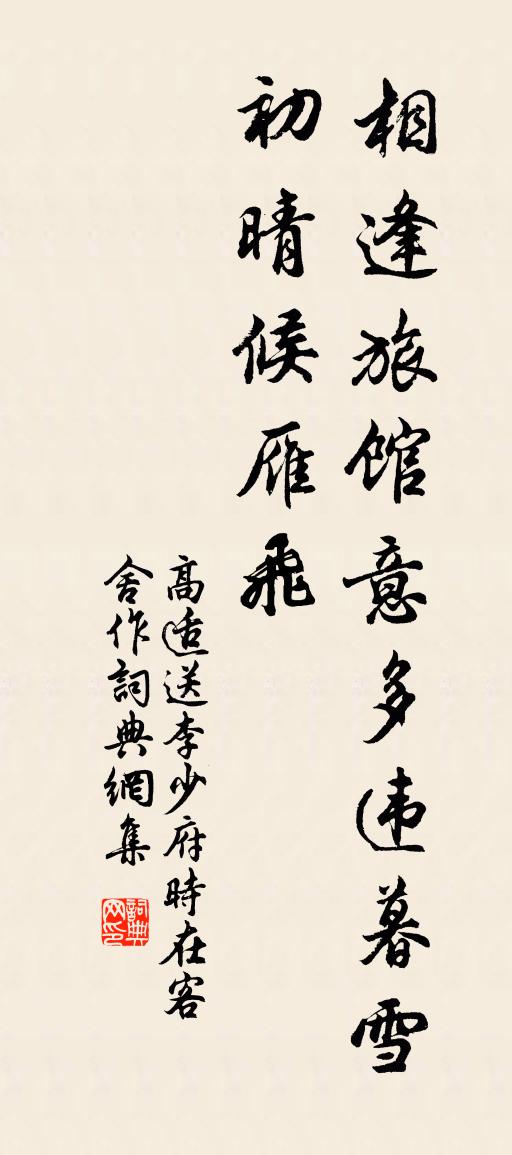 相逢旅馆意多违暮雪
初晴候雁飛
高适送李少府時在客
舍作詞典網集
詞典網印